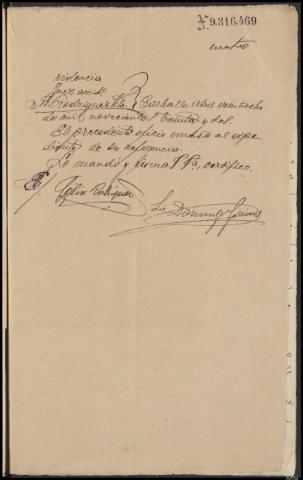 N.9.316,469
cuatro
Providencia
Juez accid.
Sr Rodriguez Carballo, Abril veintiocho
de mil novecientos treinta y dos.
El precedente oficio unase al expe
diente de su referencia.
Lo mandó y firma S Sª, certifico.
E/ Felix Rodriguez
Lic Domingo